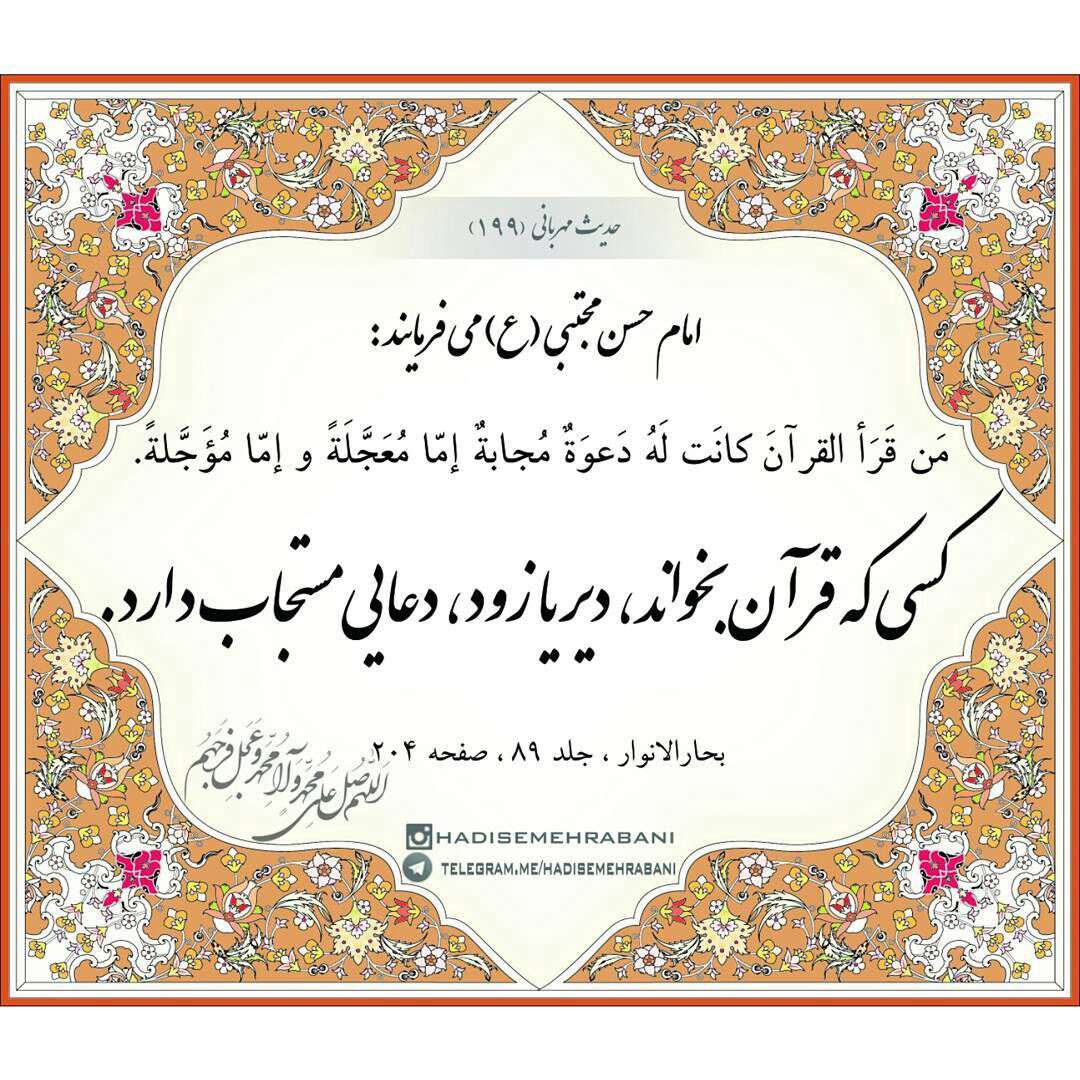 حدیث مهربانی (۱۹۹)
امام حسن مجتبی (ع) می فرمایند:
مَن قَرَأ القرآنَ كانَت لَهُ دَعوَةٌ مُجابةٌ إمّا مُعَجَّلَةً و إمّا مُؤَجَّلةً.
کسی که قرآن بخواند، دیر یا زود، دعایی مستجاب دارد.
بحارالانوار ، جلد ۸۹ ، صفحه ۲۰۴
اللهم صل علی محمد و آل محمد و عجل فرجهم
HADISEMEHRABANI
TELEGRAM.ME/HADISEMEHRABANI